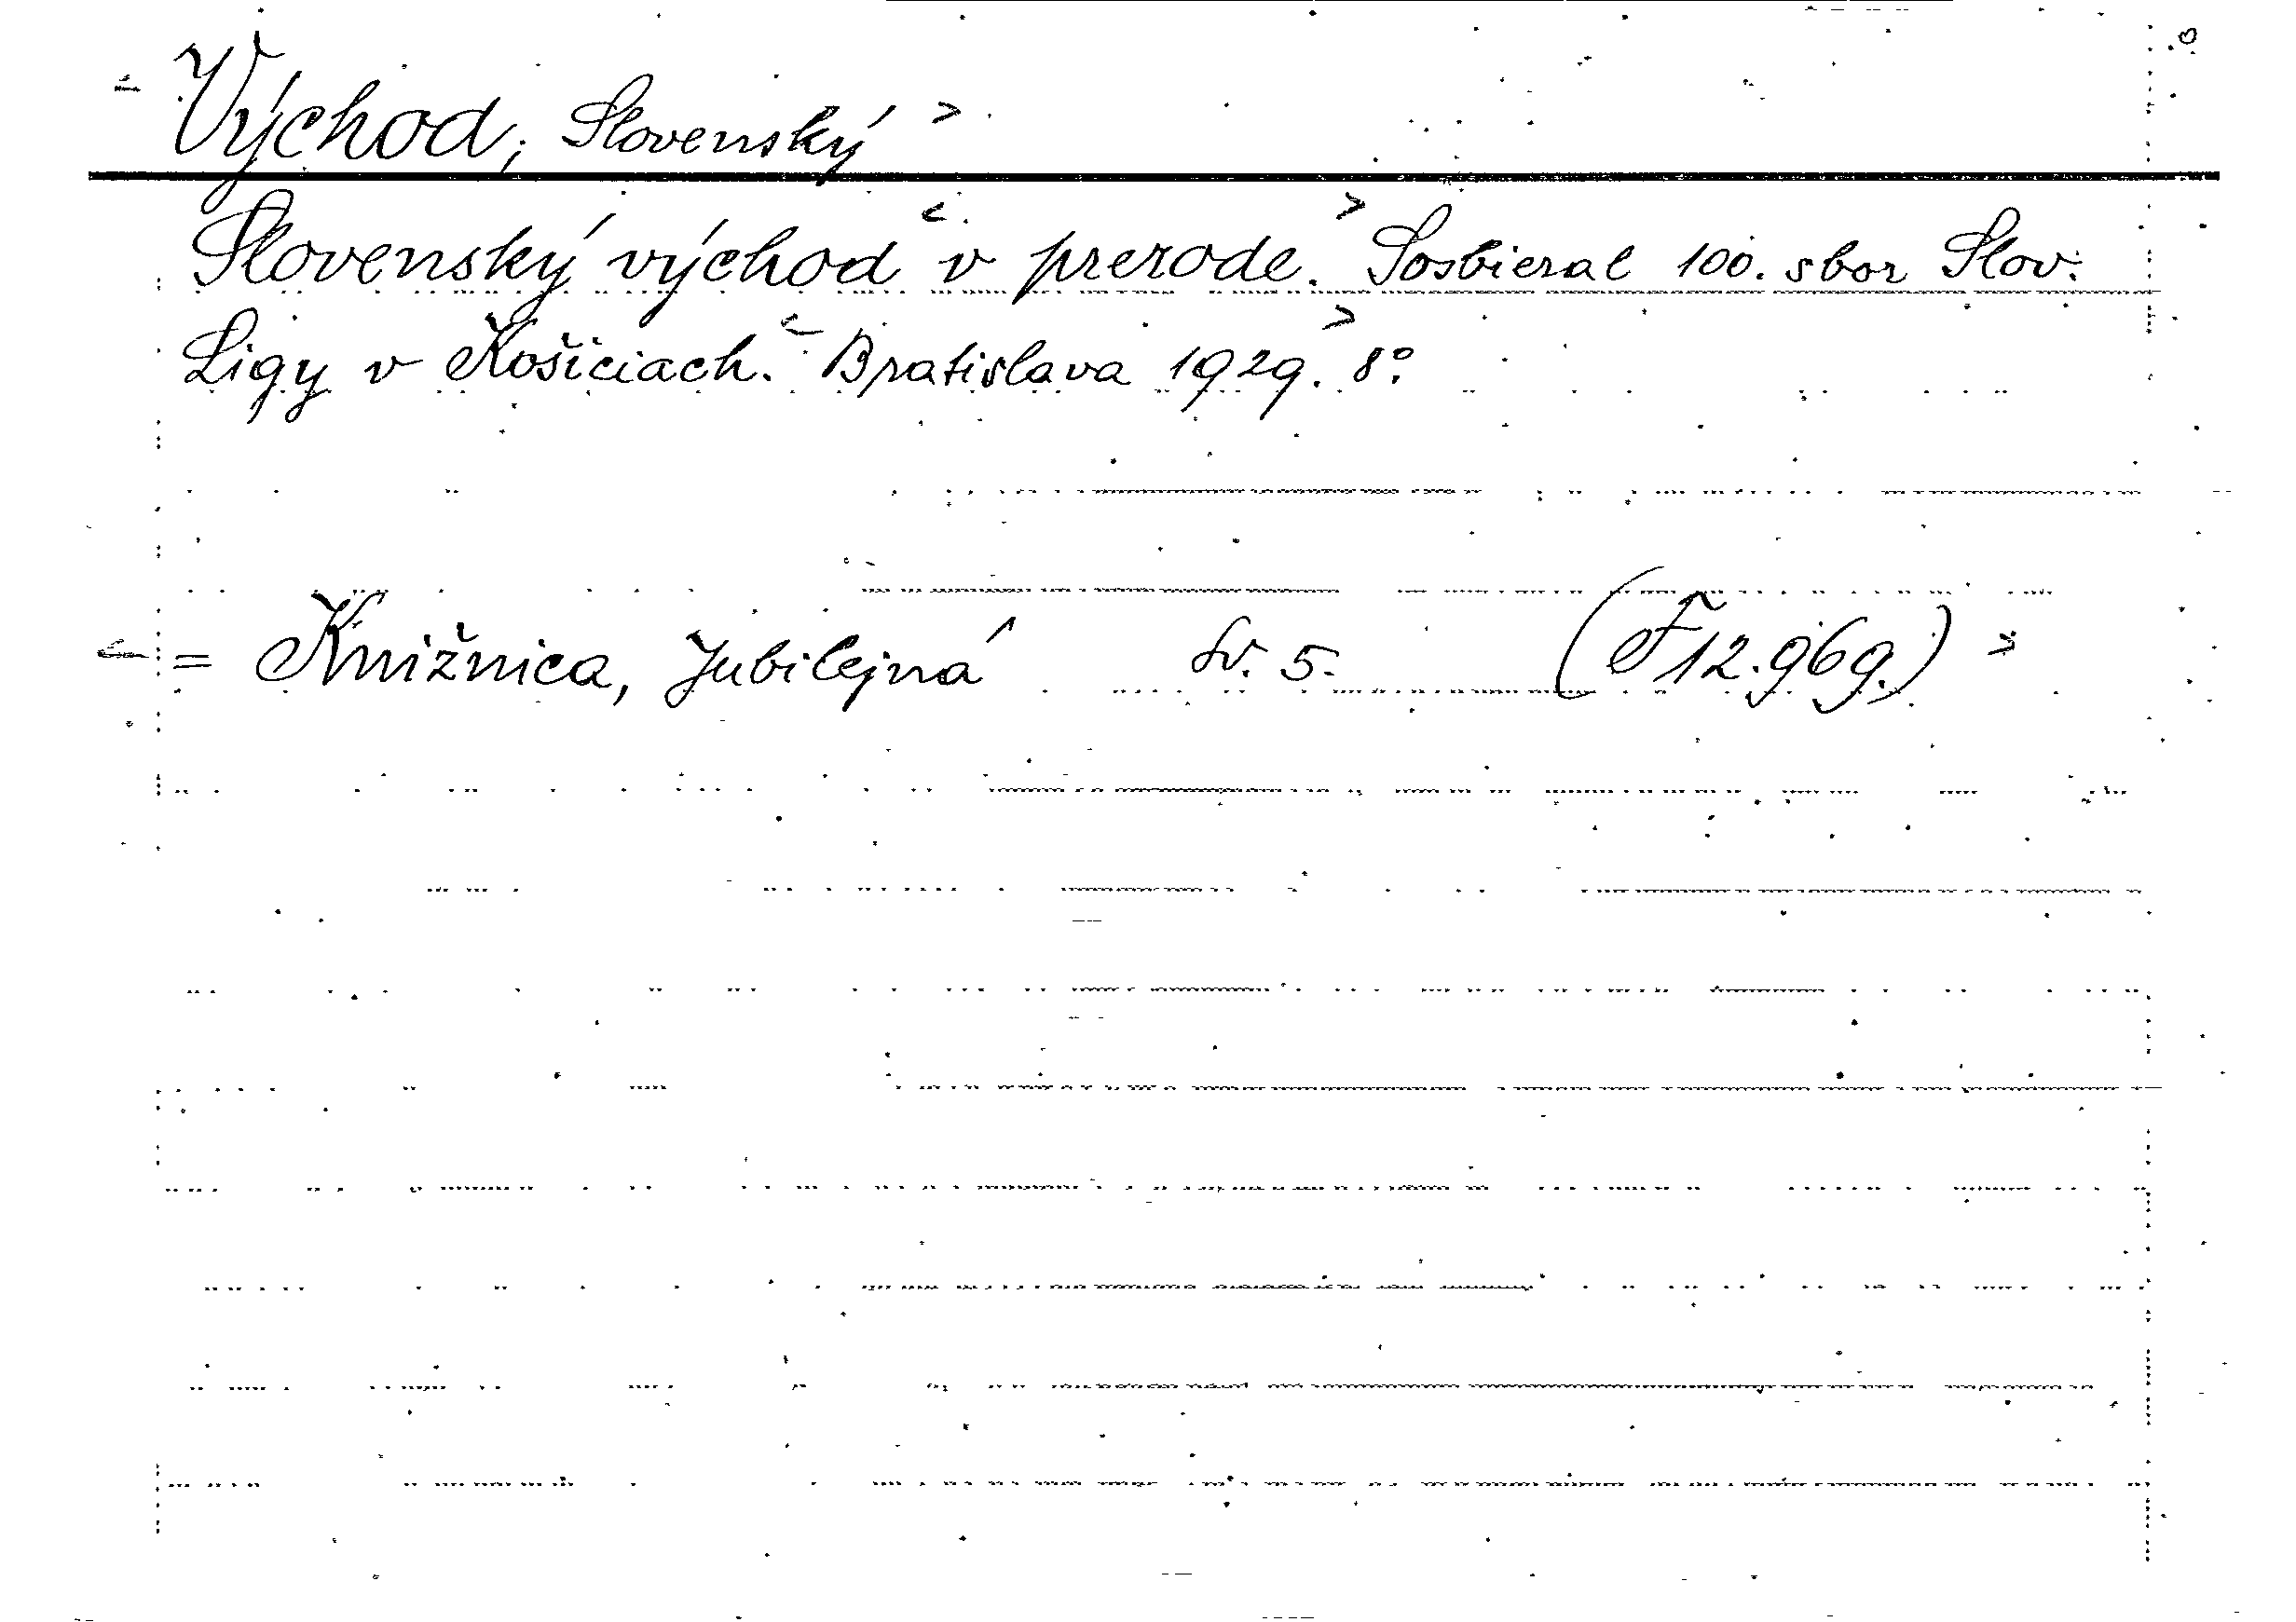 Východ, Slovenský
Slovenský východ v prerode. Sosbieral 100. sbor Slov.
Ligy v Košiciach. Bratislava 1929. 8°.
= Knižnica, Jubilejná Sv. 5. (F 12.969.)